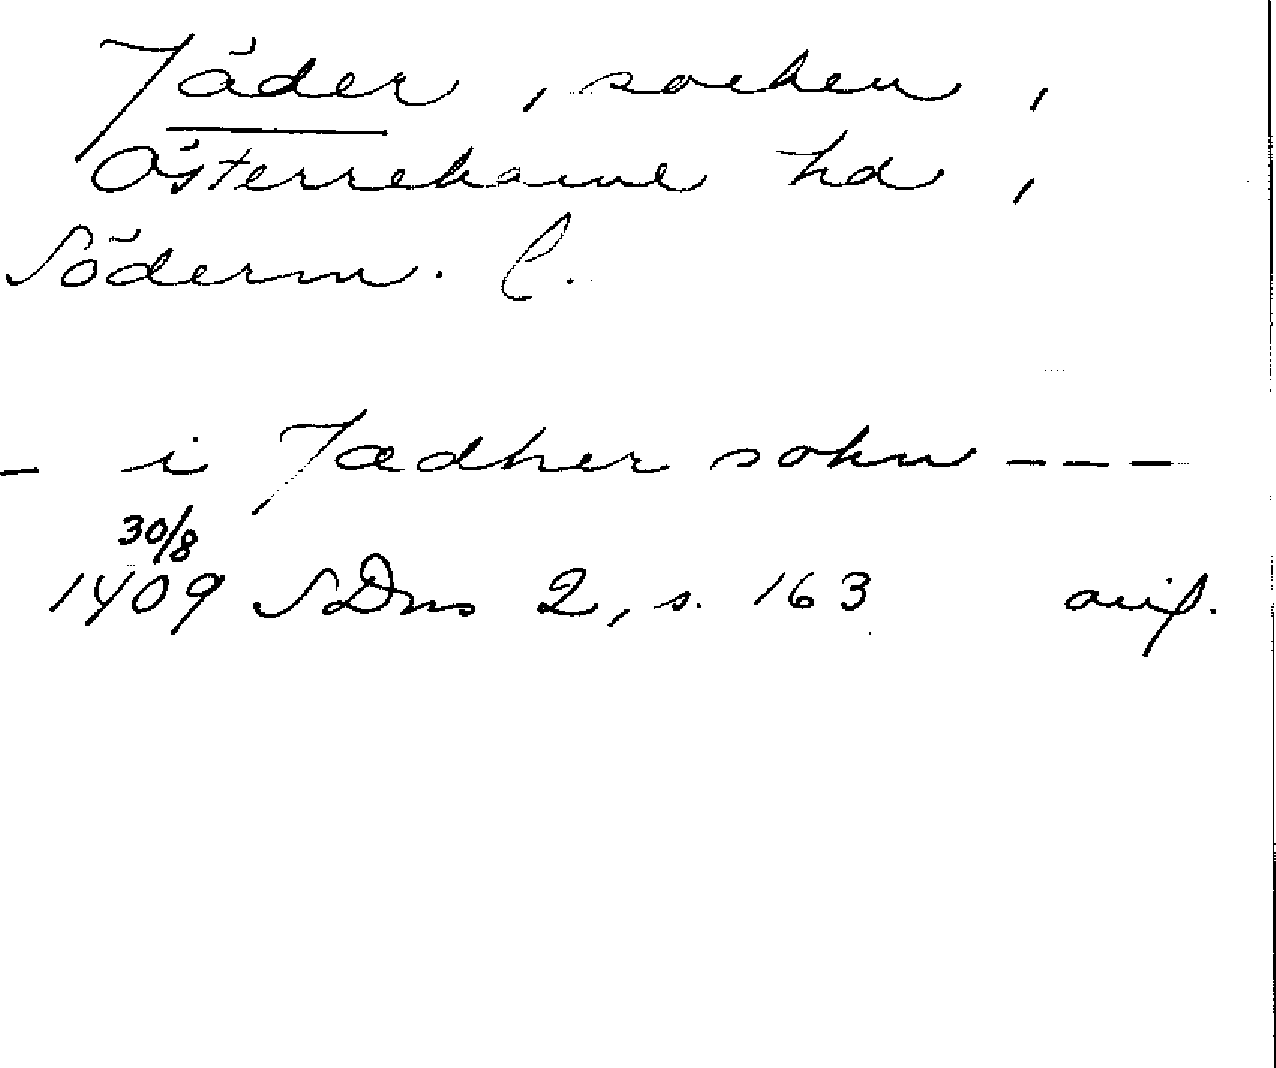 Jäder, socken,
Österrekarne hd,
Söderm. l.
- i Jædher sokn ---
30/8
1409 SDns 2, s. 163 avs.